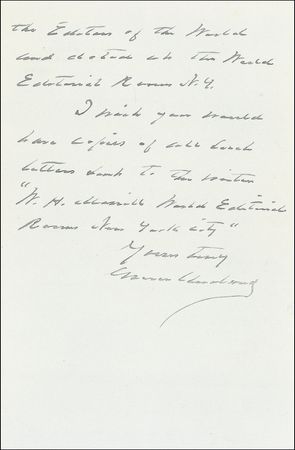 the Editors of the World
and dated at the World
Editorial Rooms N.Y.
I wish you would
have copies of all such
letters sent to the writer
"W. H. Merrill World Editorial
Rooms New York City"
Yours truly